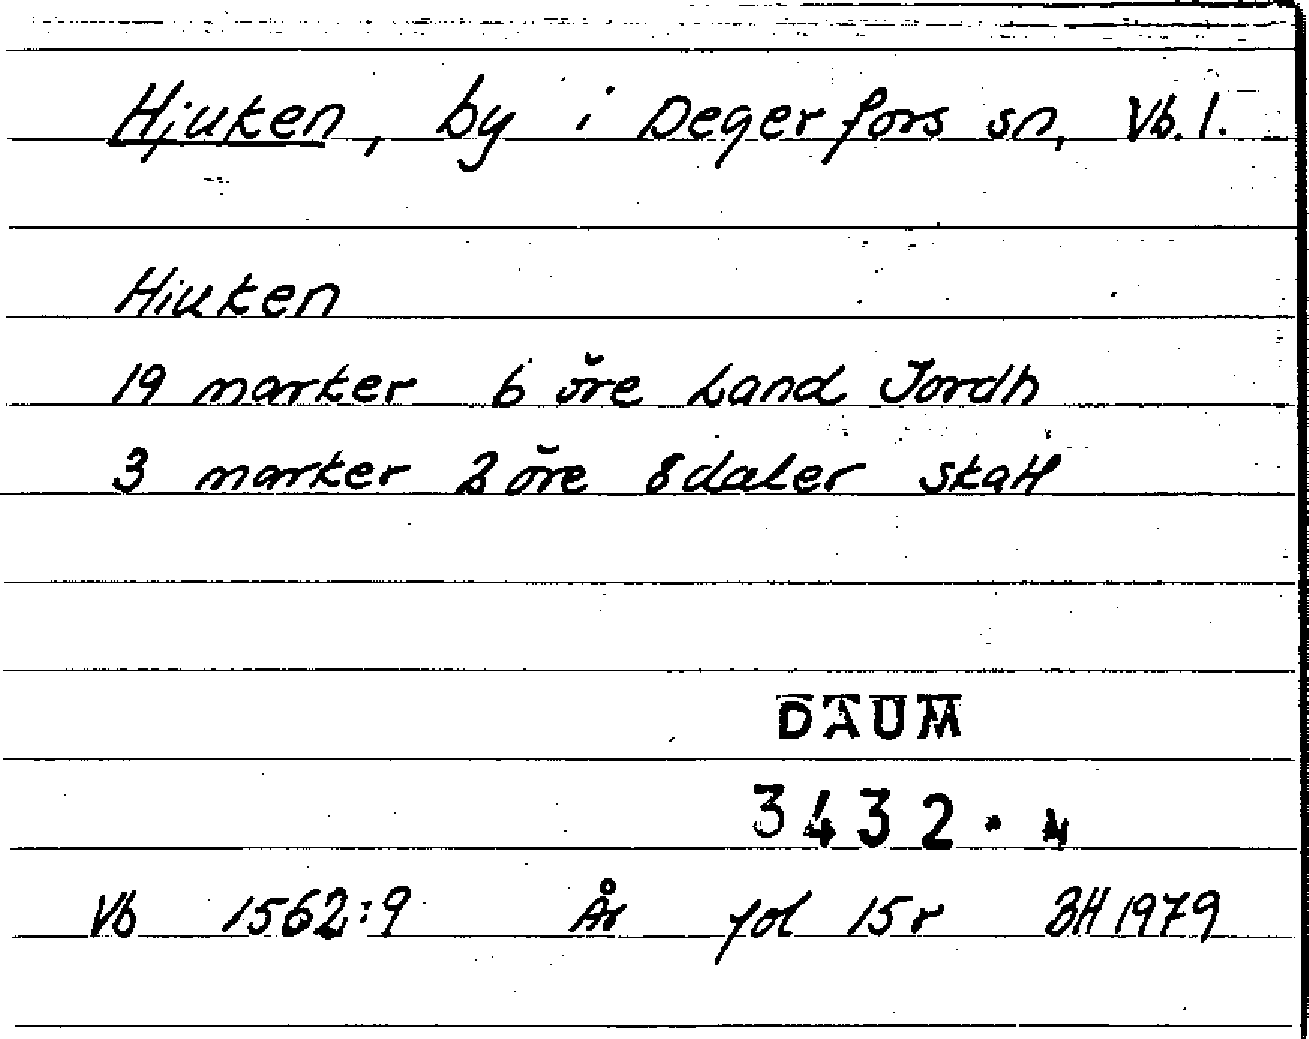 Hjuken, by i Degerfors sn, Vb. l.
Hiuken
19 marker 6 öre Land Jordh
3 marker 2 öre 8 daler skatt
DAUM
3432.4
Vb 1562:9 År fol 15 r BH 1979